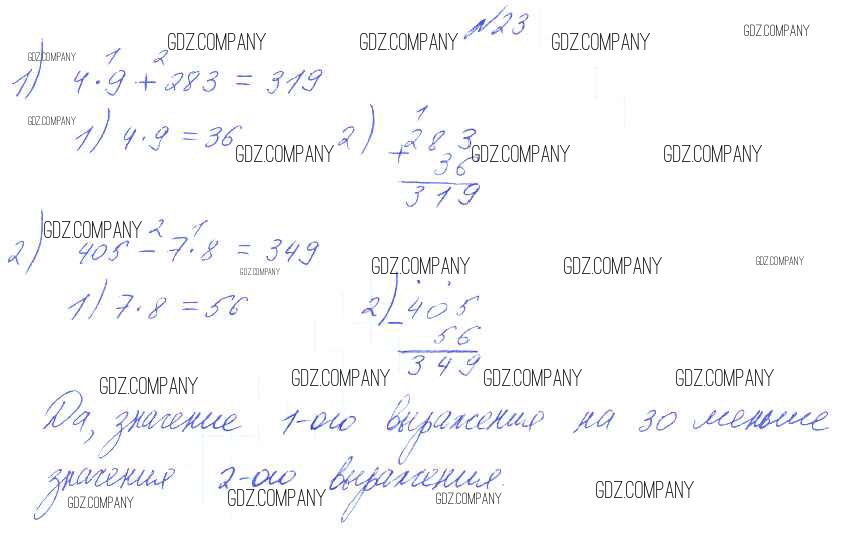 №23
GDZ.COMPANY GDZ.COMPANY GDZ.COMPANY GDZ.COMPANY
GDZ.COMPANY 1 2
1) 4·9+283=319
GDZ.COMPANY 1
1) 4·9=36 2) 283
GDZ.COMPANY + 36 GDZ.COMPANY GDZ.COMPANY
319
GDZ.COMPANY 2 1
2) 405-7·8=349
GDZ.COMPANY GDZ.COMPANY GDZ.COMPANY GDZ.COMPANY
1) 7·8=56 2) 405
- 56
349
GDZ.COMPANY GDZ.COMPANY GDZ.COMPANY GDZ.COMPANY
Да, значение 1-ого выражения на 30 меньше
значения 2-ого выражения.
GDZ.COMPANY GDZ.COMPANY GDZ.COMPANY GDZ.COMPANY